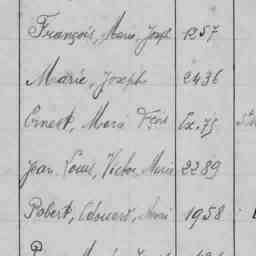 François, Marie, Joseph 1257
Marie, Joseph 2436
Ernest, Marie Fçois Ex. 75
Jean. Louis, Victor, Marie 2289
Robert, Edouard, Henri 1958